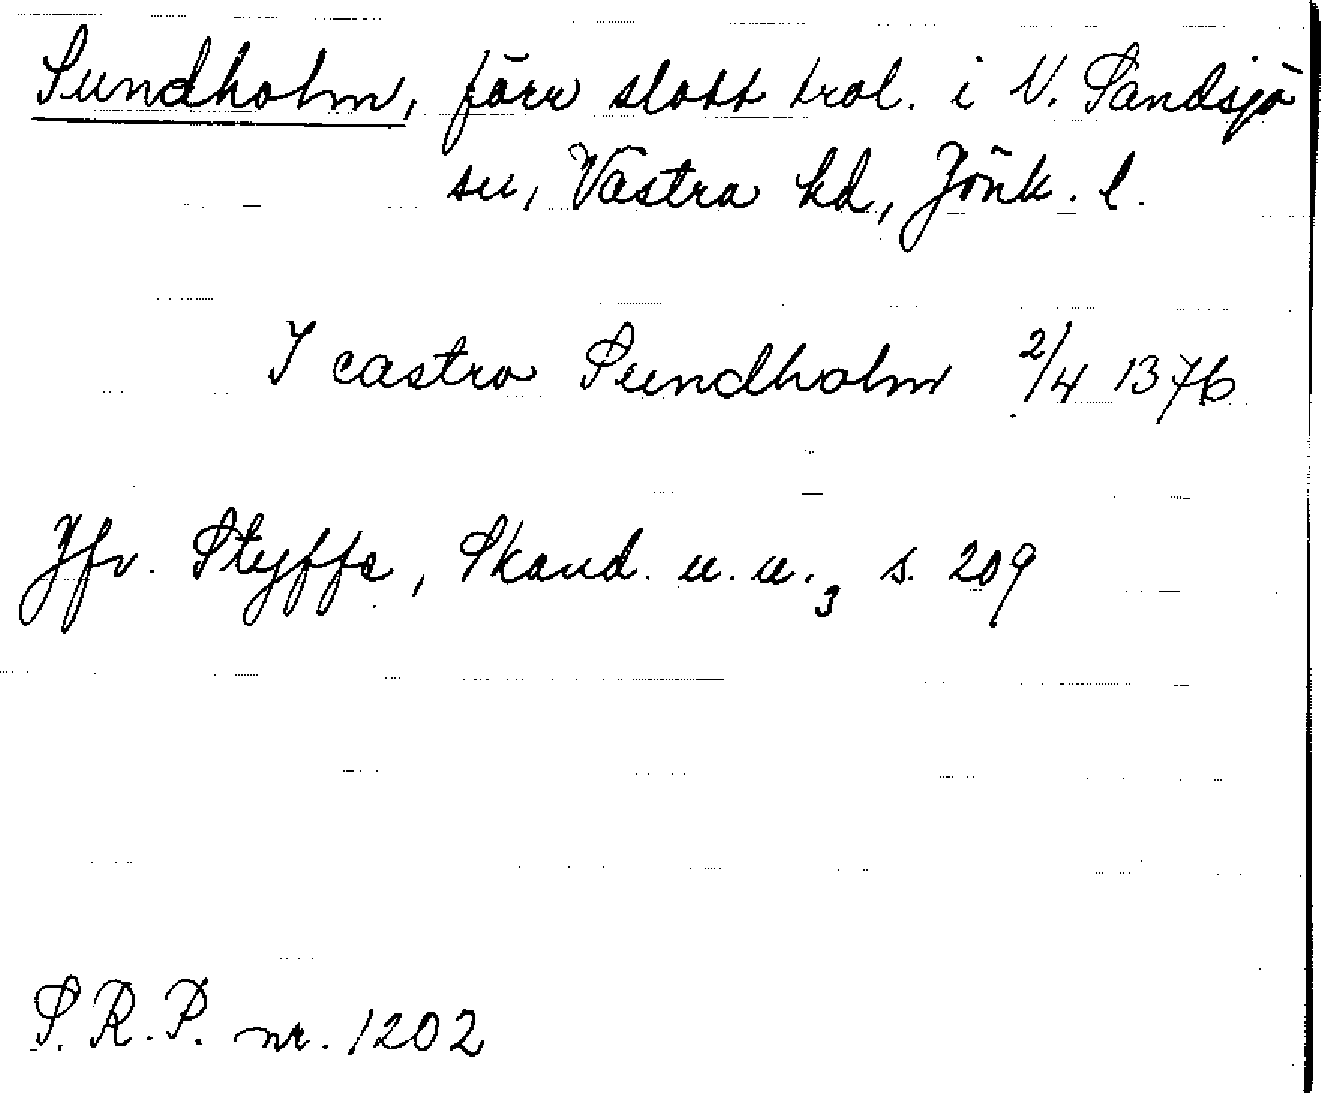 Sundholm, förr slott trol. i N. Sandsjö
sn, Västra hd, Jönk. l.
I castro Sundholm 2/4 1376
Jfr. Styffe, Skand. u. u.3 s. 209
S.R.P. nr. 1202